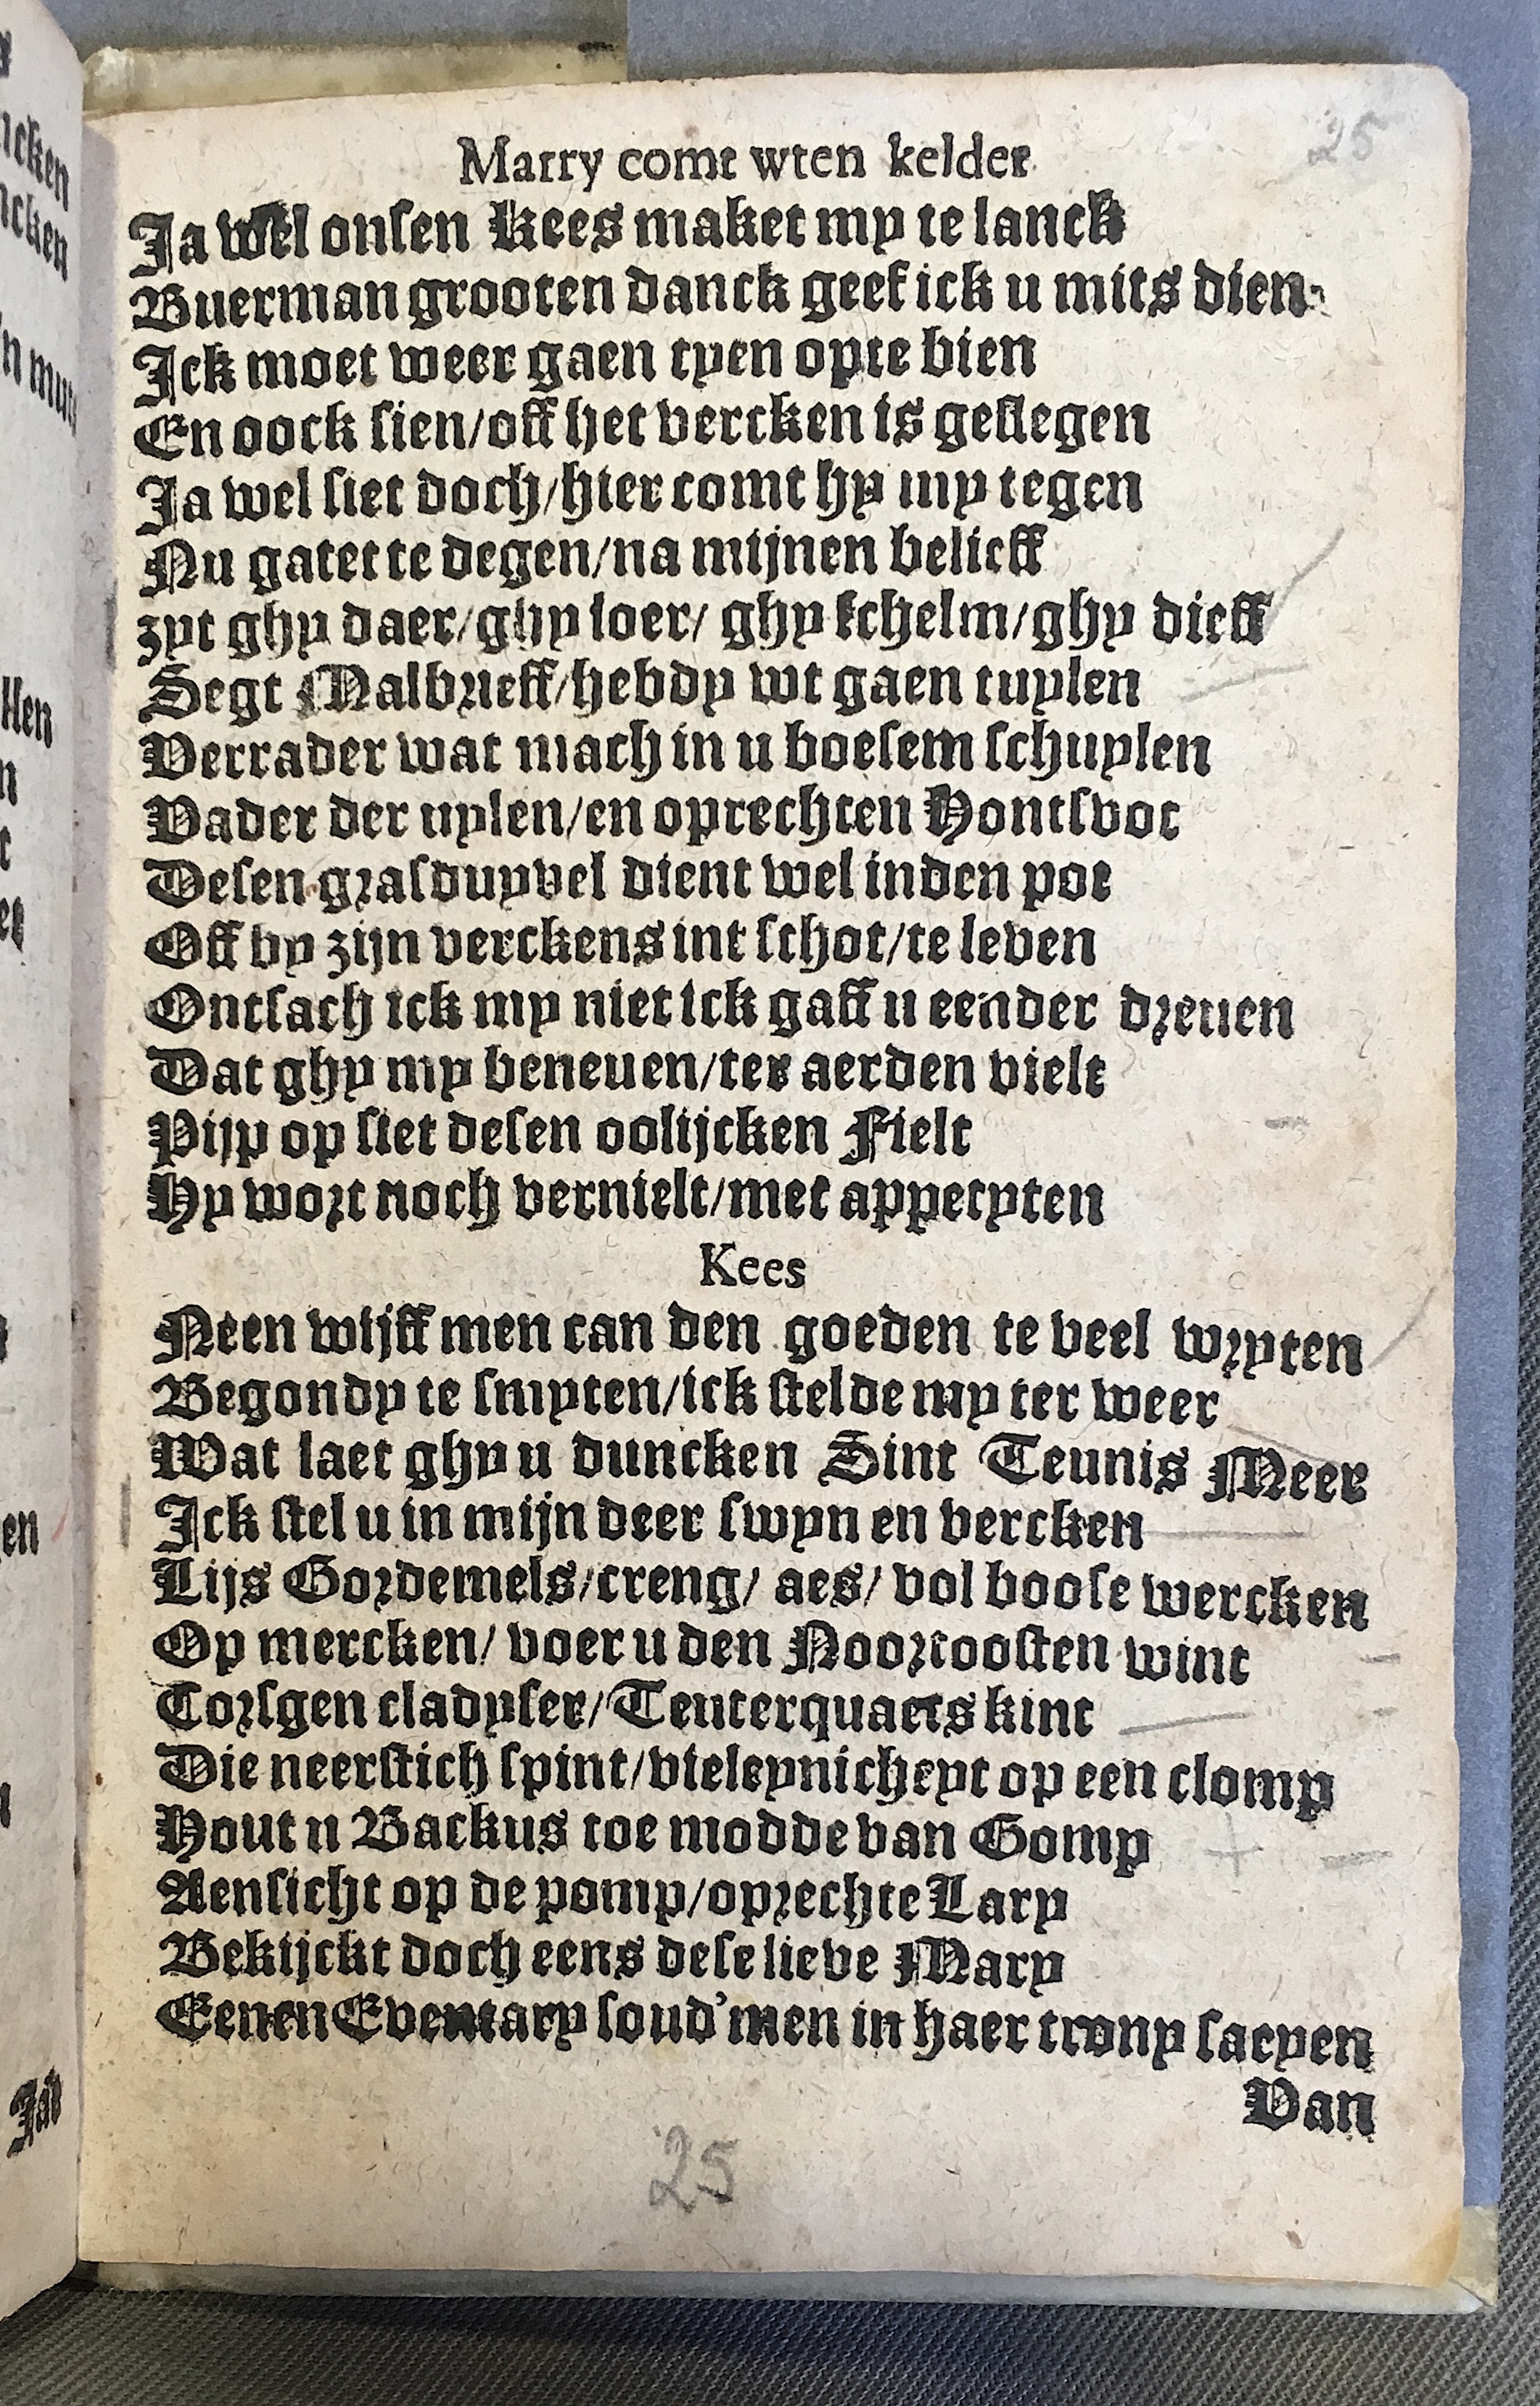 25
Marry comt wten kelder
Ja wel onſen Kees maket my te lanck
Buerman grooten danck geef ick u mits dien
Ick moet weer gaen tyen opte bien
En oock ſien/off het vercken is geſlegen
Ja wel ſiet doch/hier comt hy my tegen
Nu gatet te degen/na mijnen belieff
zyt ghy daer/ghy loer/ ghy ſchelm/ghy dieff
Segt Malbrieff/hebdy wt gaen tuylen
Verrader wat mach in u boeſem ſchuylen
Vader der uylen/en oprechten Hontſvot
Deſen graſduyvel dient wel inden pot
Off by zijn verckens int ſchot/te leven
Ontſach ick my niet ick gaff u eender dreuen
Dat ghy my beneuen/ter aerden vielt
Pijp op ſiet deſen oolijcken Fielt
Hy wort noch vernielt/met appetyten
Kees
Neen wijff men can den goeden te veel wryten
Begondy te ſmyten/ick ſtelde my ter weer
Wat laet ghy u duncken Sint Teunis Meer
Ick ſtel u in mijn deer ſwyn en vercken
Lijs Gordemels/creng/ aes/ vol booſe wercken
Op mercken/ voer u den Noortooſten wint
Torſgen cladyſer/Teuterquaets kint
Die neerſtich ſpint/vieleynicheyt op een clomp
Hout u Backus toe modde van Gomp
Aenſicht op de pomp/oprechte Lary
Bekijckt doch eens deſe lieve Mary
Eenen Eventary ſoud'men in haer trony ſaeyen
Van
25